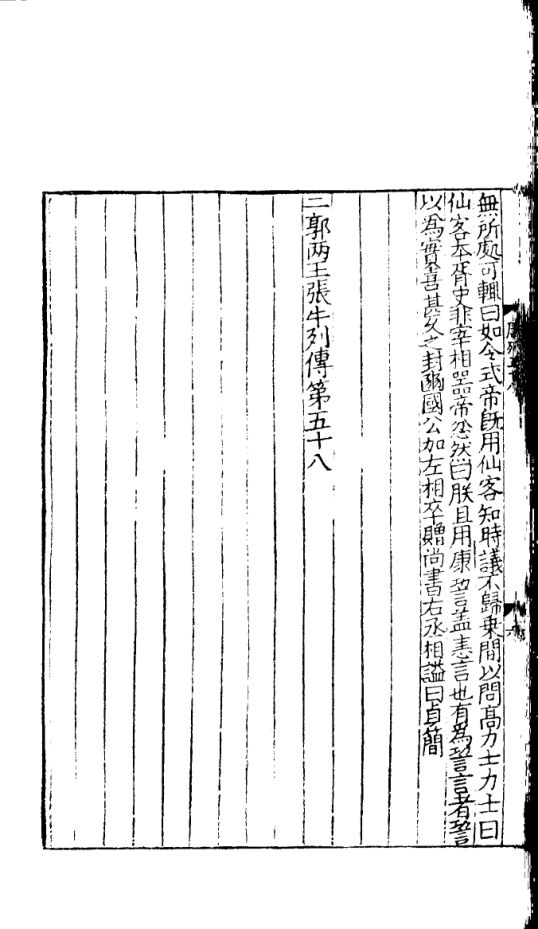 無所處可輒曰如令式帝旣用仙客知時議不歸乗間以問髙力士力士曰
仙客本胥史非宰相噐帝忿然曰朕且用康䛑言盖恚言也有爲䛑言者䛑
以爲實喜甚久之封豳國公加左相卒贈尚書右丞相謚曰貞簡
二郭两王張牛列傳第五十八